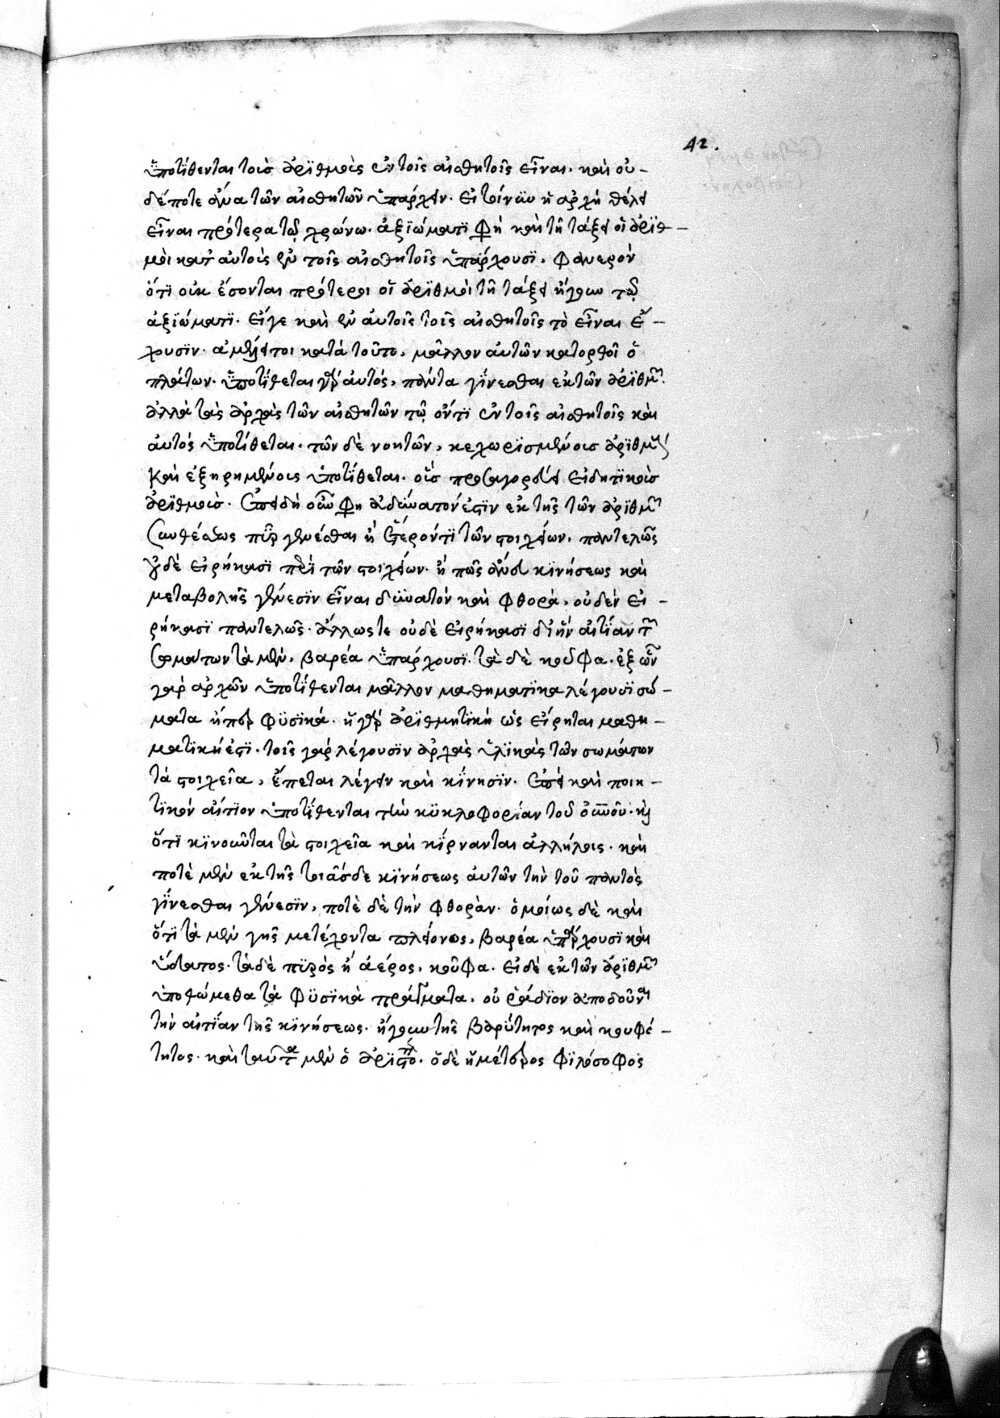 42.
ὑποτίθενται τοὺς ἀριθμοὺς ἐν τοῖς αἰσθητοῖς εἶναι. καὶ οὐ-
δέποτε ἄνευ τῶν αἰσθητῶν ὑπάρχειν. εἰ τοίνυν ἡ ἀρχὴ θέλει
εἶναι πρότερα τῷ χρόνῳ. ἀξιώματι φη καὶ τῇ τάξει οἱ ἀριθ-
μοὶ κατ' αὐτοὺς ἐν τοῖς αἰσθητοῖς ὑπάρχουσι. φανερὸν
ὅτι οὐκ ἔσονται πρότεροι οἱ ἀριθμοὶ τῇ τάξει ἤγουν τῷ
ἀξιώματι. εἴγε καὶ ἐν αὐτοῖς τοῖς αἰσθητοῖς τὸ εἶναι ἔ-
χουσιν. ἀμέλει τοι κατὰ τοῦτο, μᾶλλον αὐτῶν κατορθοῖ ὁ
πλάτων. ὑποτίθεται γὰρ αὐτός, πάντα γίνεσθαι ἐκ τῶν ἀριθμῶν.
ἀλλὰ τὰς ἀρχὰς τῶν αἰσθητῶν τῷ ὄντι ἐν τοῖς αἰσθητοῖς καὶ
αὐτὸς ὑποτίθεται. τῶν δὲ νοητῶν, κεχωρισμένους ἀριθμοὺς
καὶ ἐξῃρημένους ὑποτίθεται. οὓς προσαγορεύει εἰδητικοὺς
ἀριθμούς. ἐπειδὴ οὖν φη ἀδύνατον ἐστὶν ἐκ τῆς τῶν ἀριθμῶν
συνθέσεως πῦρ γενέσθαι ἢ ἕτερόν τι τῶν στοιχείων. παντελῶς
οὐδὲ εἰρήκασι περὶ τῶν στοιχείων. ἢ πῶς ἄνευ κινήσεως καὶ
μεταβολῆς γένεσιν εἶναι δυνατὸν καὶ φθορὰ, οὐδὲν εἰ-
ρήκασι παντελῶς. ἄλλωστε οὐδὲ εἰρήκασι δι' ἣν αἰτίαν τῶν
σωμάτων τὰ μὲν, βαρέα ὑπάρχουσι. τὰ δὲ κοῦφα. ἐξ ὧν
γὰρ ἀρχῶν ὑποτίθενται μᾶλλον μαθηματικὰ λέγουσι σώ-
ματα ἤπερ φυσικά. ἡ γὰρ ἀριθμητικὴ ὡς εἴρηται μαθη-
ματική ἐστι. τοῖς γὰρ λέγουσιν ἀρχὰς ὑλικὰς τῶν σωμάτων
τὰ στοιχεῖα, ἕπεται λέγειν καὶ κίνησιν. ἐπεὶ καὶ ποιη-
τικὸν αἴτιον ὑποτίθενται τὴν κυκλοφορίαν τοῦ οὐρανοῦ. καὶ
ὅτι κινοῦνται τὰ στοιχεῖα καὶ κίρνανται ἀλλήλοις. καὶ
ποτὲ μὲν ἐκ τῆς τοιᾶσδε κινήσεως αὐτῶν τὴν τοῦ παντὸς
γίνεσθαι γένεσιν, ποτὲ δὲ τὴν φθοράν. ὁμοίως δὲ καὶ
ὅτι τὰ μὲν γῆς μετέχοντα πλείονος, βαρέα ὑπάρχουσι καὶ
ὕδατος. τὰ δὲ πυρὸς ἢ ἀέρος, κοῦφα. εἰ δὲ ἐκ τῶν ἀριθμῶν
ὑποθώμεθα τὰ φυσικὰ πράγματα, οὐ ῥάδιον ἀποδοῦναι
τὴν αἰτίαν τῆς κινήσεως. ἤγουν τῆς βαρύτητος καὶ κουφό-
τητος. καὶ ταῦτα μὲν ὁ ἀριστο. ὁ δὲ ἡμέτερος φιλόσοφος